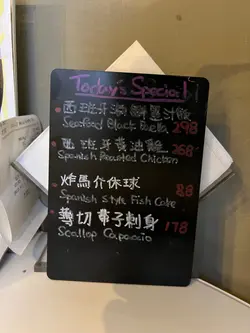 Today's Special
西班牙海鮮墨汁飯
Seafood Black Paella 298
西班牙黃油雞 268
Spanish Roasted Chicken
炸馬介休球 88
Spanish Style Fish Cake
薄切帶子刺身 178
Scallop Capaccio